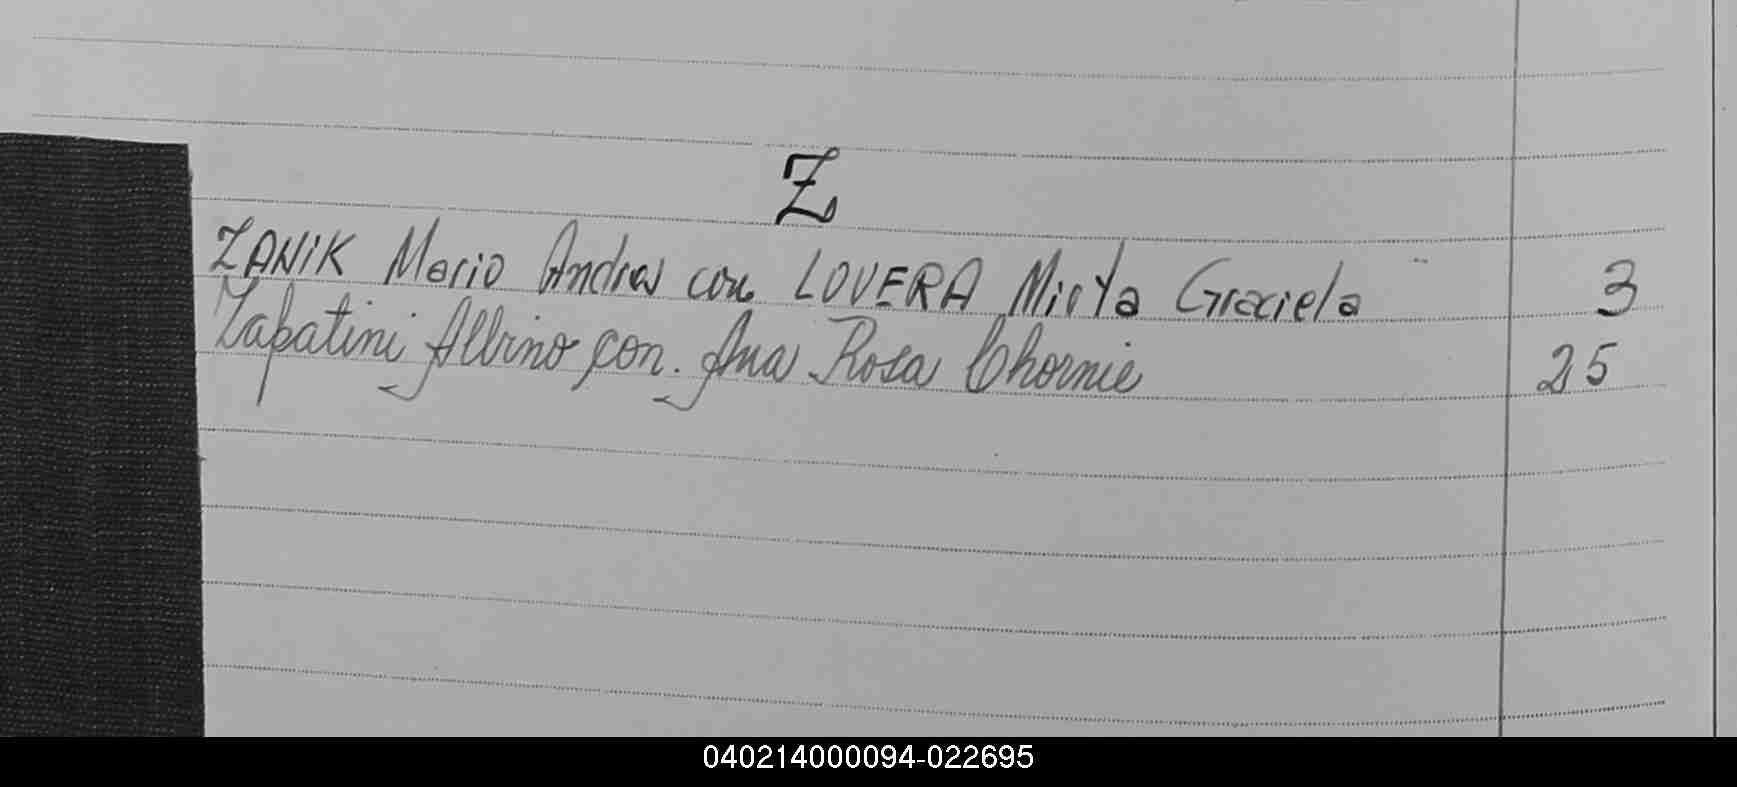 Z
ZANIK Mario Andres con LOVERA Mirta Graciela 3
Zapatini Albino con. Ana Rosa Chornie 25
040214000094-022695